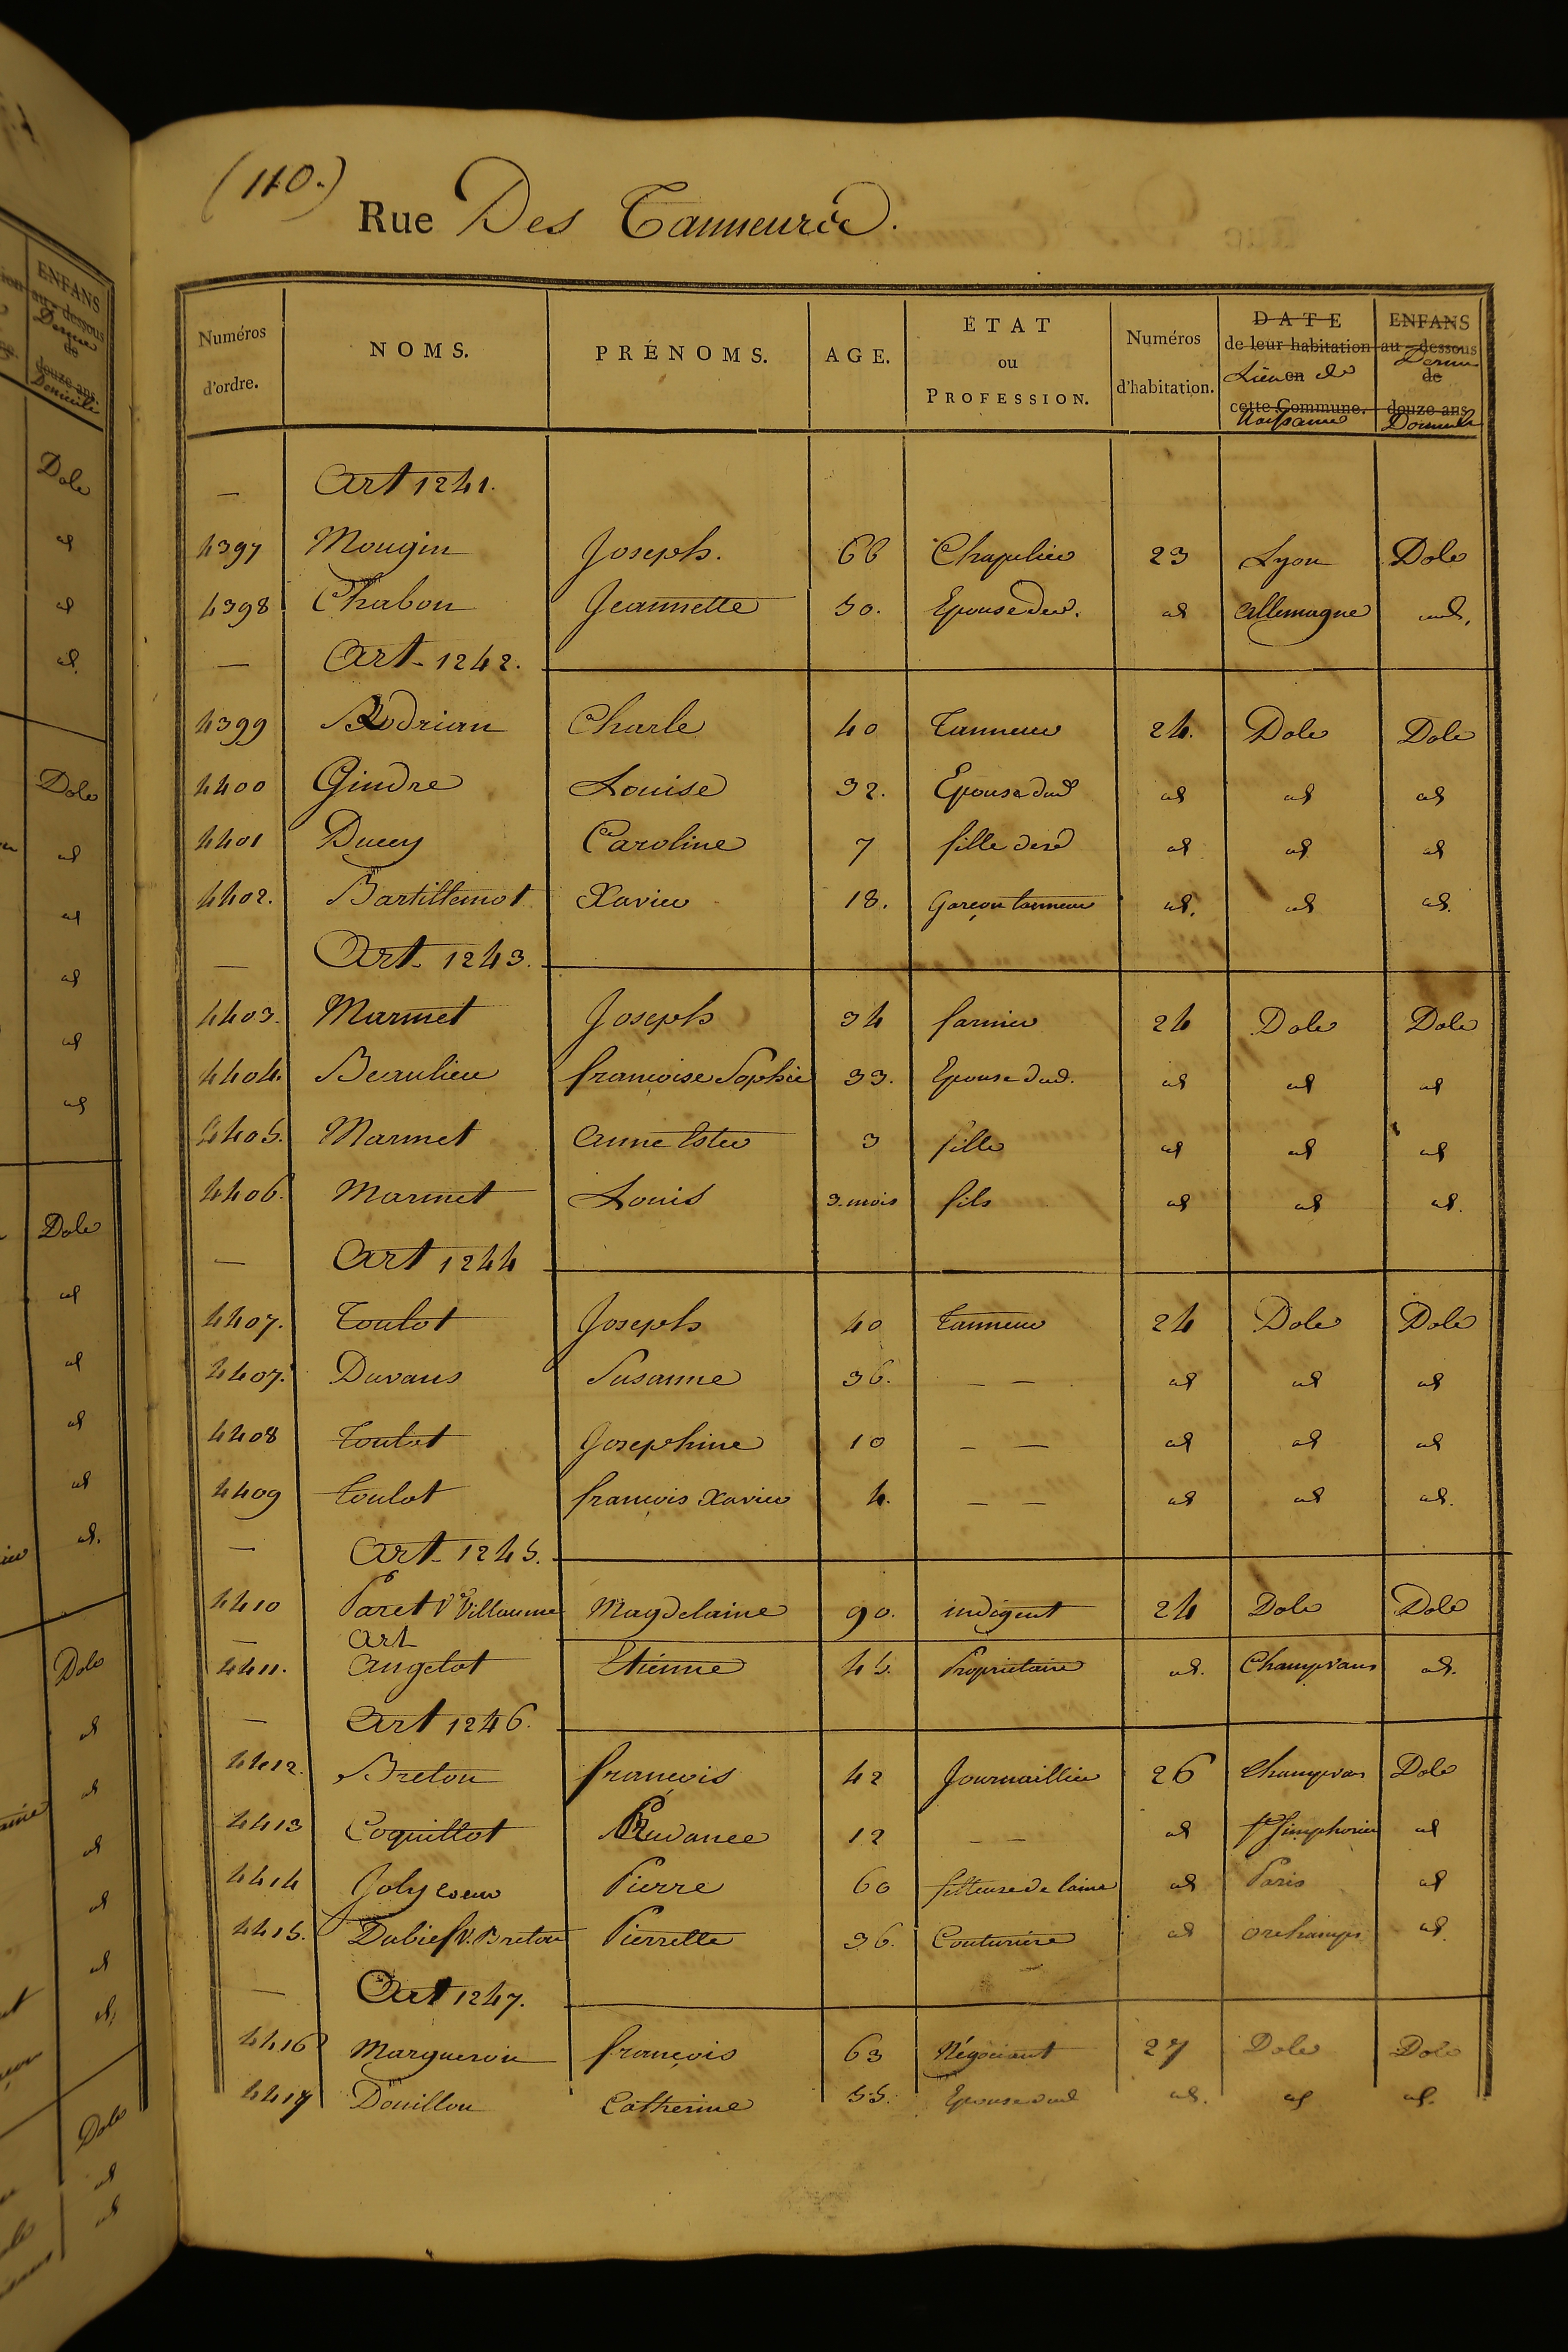 (110.)
Rue Des Tanneurs.
Numéros d'ordre. NOMS. PRÉNOMS. AGE. ÉTAT ou PROFESSION. Numéros d'habitation. DATE de leur habitation en cette Commune. Lieu de Naissance ENFANS au-dessous de douze ans Domicile
— Art 1241.
4397 Mougin Joseph. 66 Chapelier 23 Lyon Dole
4398 Chabon Jeannette 50. Epouse ded. id Allemagne id.
— Art. 1242.
4399 Charle 40 Tanneur 24. Dole Dole
4400 Gindre Louise 32. Epouse dud id id id
4401 Ducey Caroline 7 fille id id id
4402. Bartillemot Xavier 18. Garçon tanneur id. id id.
— Art. 1243.
4403. Marmet Joseph 34 farnier 24 Dole Dole
4404. Beaulieu françoise Sophie 33. Epouse dud. id id id
4405. Marmet Anne Ester 3 fille id id id
4406. Marmet Louis 3. mois fils id id id.
— Art 1244
4407. Toulot Joseph 40 Tanneur 24 Dole Dole
4407. Duvans Susanne 36. — — id id id
4408 Toulot Josephine 10 — — id id id
4409 Toulot françois Xavier 4. — — id id id.
— Art. 1245.
4410 Paret Ve Villaume Magdelaine 90. indigent 24 Dole Dole
— Art
4411. Angelot Etienne 45. Proprietaire id. Champvans id.
— Art 1246.
4412. Breton françois 42 Journaillier 26 Champvans Dole
4413 Coquillot Prudance 12 — — id St Simphorien id
4414 Joly coeur Pierre 60 filleuse de laine id Paris id
4415. Dubief V. Breton Pierrette 36. Couturiere id orchamps id.
— Art 1247.
4416 Margueron françois 63 Négociant 27 Dole Dole
4417 Douillon Catherine 55. Epouse dud id. id id.
ENFANS
au-dessous
de
douze ans.
Domicile
Dole
id
id
id.
Dole
id
id
id
id
id
Dole
id
id
id
id
id.
Dole
id
id
id
id
id
id.
Dole
id
id